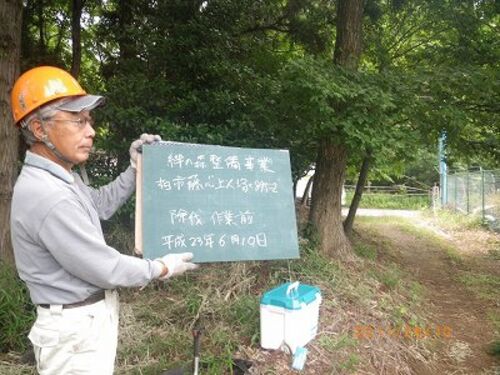 絆の森整備事業
柏市藤心上人塚897-2
除伐 作業前
平成23年6月10日